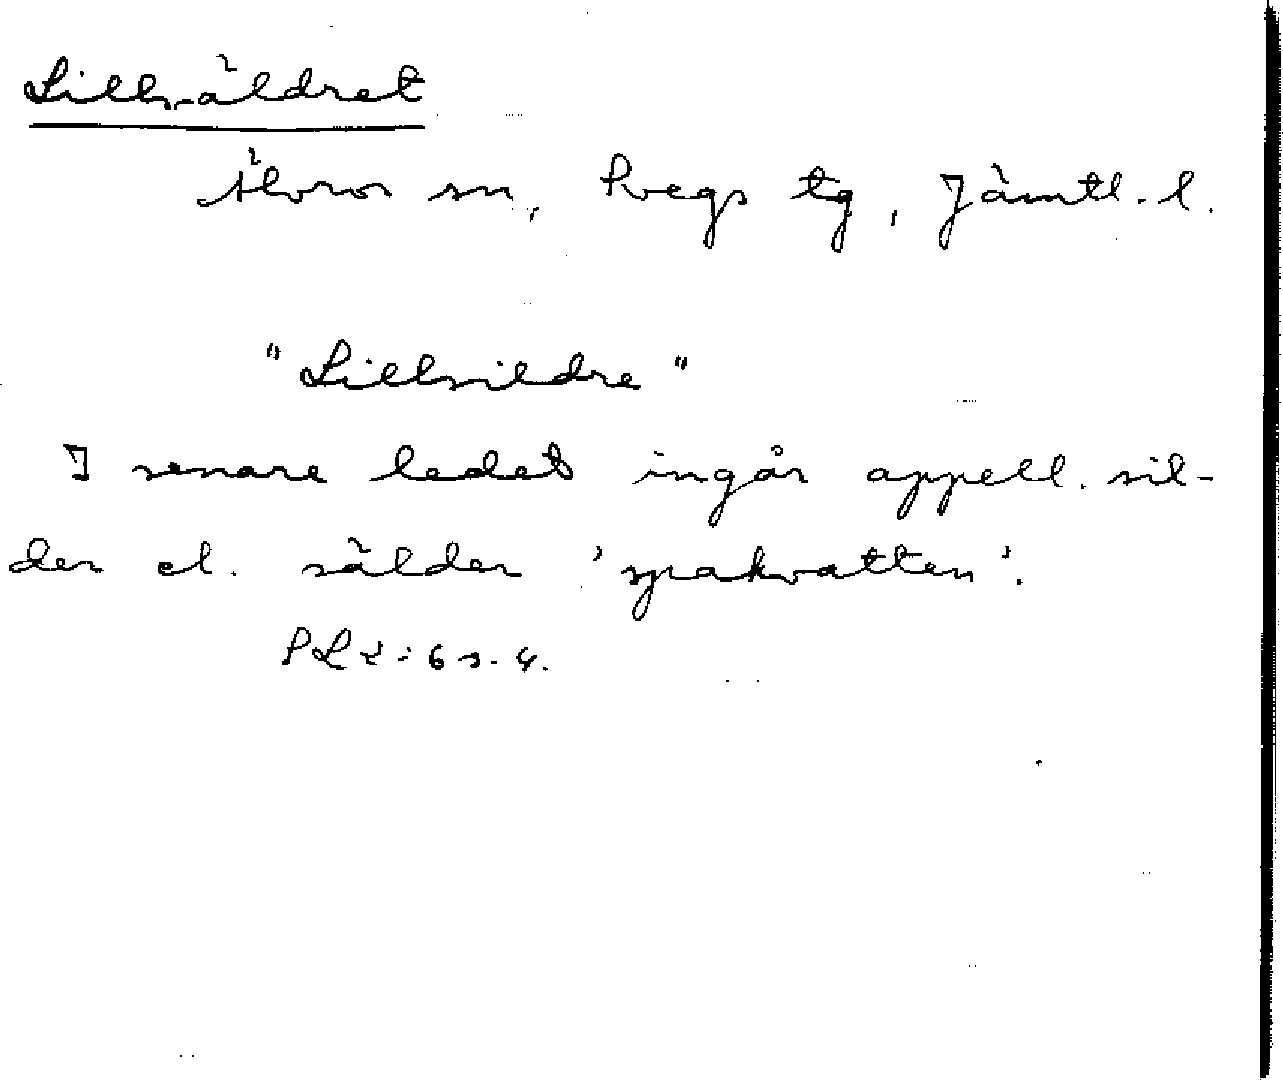 Lillsäldret
Älvros sn, Svegs tg, Jämtl. l.
"Lillsildre"
I senare ledet ingår appell. sil-
der el. sälder 'spakvatten'.
PL 2:6 s. 4.